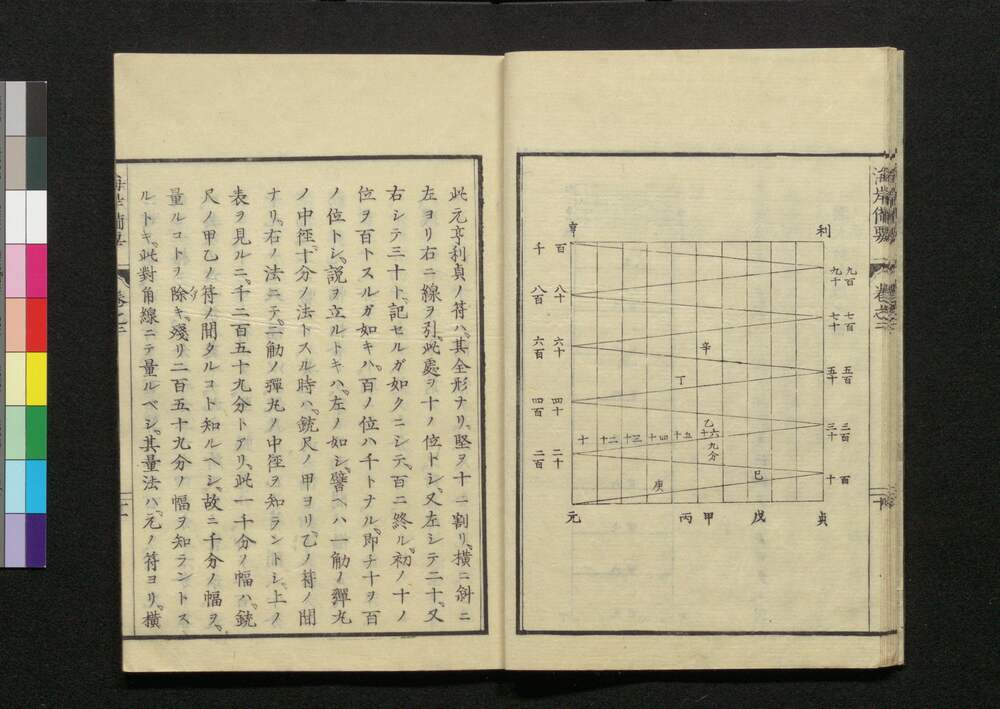 海岸備要
卷之三
十
利
亨
百
千
九百
九十
八十
八百
七百
七十
六十
六百
辛
五百
五十
丁
四十
四百
三百
三十
乙
十六
九分
十五
十四
十三
十二
十
二十
二百
百
十
巳
庚
貞
戊
甲
丙
元
此元亨利貞ノ符ハ、其全形ナリ、堅ヲ十ニ割リ、横ニ斜ニ
左ヨリ右ニ線ヲ引、此處ヲ十ノ位トシ、又左シテ二十、又
右シテ三十ト、記セルガ如クニシテ、百ニ終ル、初ノ十ノ
位ヲ百トスルガ如キハ、百ノ位ハ千トナル、即チ十ヲ百
ノ位トシ、説ヲ立ルトキハ、左ノ如シ、譬ヘハ一觔ノ彈丸
ノ中徑、十分ノ法トスル時ハ、銃尺ノ甲ヨリ、乙ノ符ノ間
ナリ、右ノ法ニテ、二觔ノ彈丸ノ中徑ヲ知ラントシ、上ノ
表ヲ見ルニ、千二百五十九分トアリ、此一千分ノ幅ハ、銃
尺ノ甲乙ノ符ノ間タルコト知ルヘシ、故ニ千分ノ幅ヲ、
量ルコトヲ除キ、殘リ二百五十九分ノ幅ヲ知ラントス
ルトキ、此對角線ニテ量ルベシ、其量法ハ、元ノ符ヨリ、横